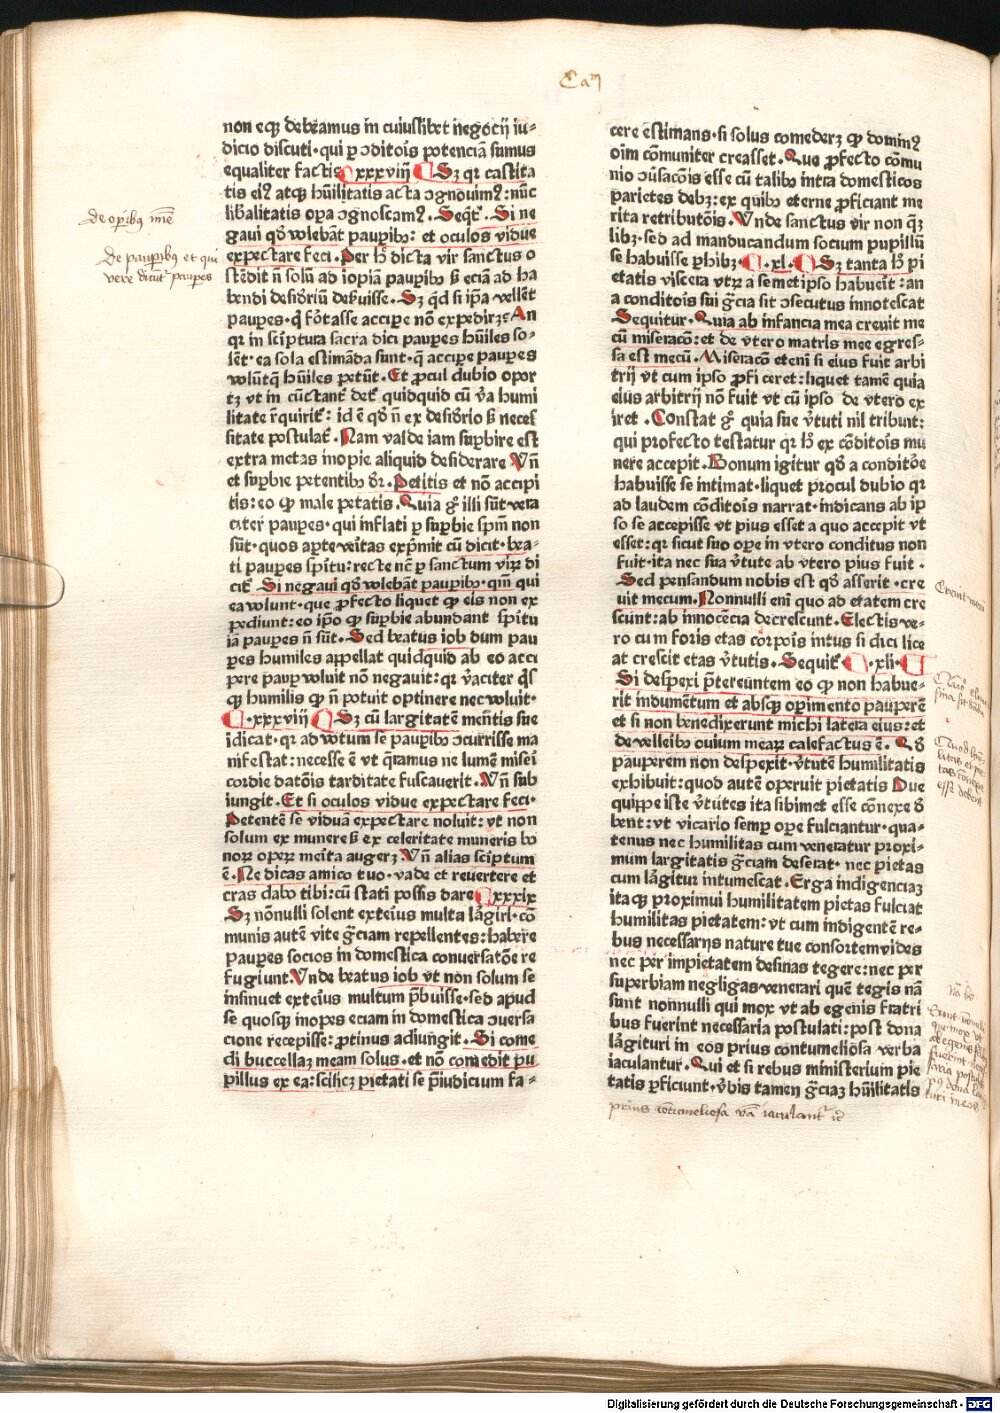 Cam
non eqꝫ debeamus in cuiuslibet negocij iu⸗
dicio discuti·qui ꝑ ↄditois potenciā sumus
equaliter factis xxxviij Sꝫ qꝛ castita
tis eiꝰ atqꝫ hūilitatis acta ↄgnouimꝰ:nūc
libalitatis oꝑa ↄgnoscamꝰ. Seqt̄. Si ne
gaui qđ volebāt pauꝑibꝫ: et oculos vidue
expectare feci. Per h̄ dicta vir sanctus o
stēdit n̄ solū ad iopiā pauꝑibꝫ ß eciā ad ha
bendi desiđiū deßuisse. Sꝫ qd si iꝑa vellēt
pauꝑes·q̄ foꝛtasse acciꝑe nō expedirꝫ An
qꝛ in scꝛiptura sacra dici pauꝑes hūiles so⸗
lēt·ea sola estimāda sunt·q̄ acciꝑe pauꝑes
volūtqꝫ hūiles petūt. Et ꝓcul dubio opoꝛ
tꝫ vt in cūctant̄ det̄ quidquid cū ṽa humi
litate r̄quirit̄: id ē qđ n̄ ex desiđio ß necef
sitate postulat̄. Nam valde iam suꝑbire est
extra metas inopie aliquid desiderare Vn̄
et suꝑbie petentibꝫ đꝛ. Petitis et nō accipi
tis:eo ꝙ male petatis. Quia gͦ illi sūt vera
citer pauꝑes·qui inflati ꝑ suꝑbie spm̄ non
sūt·quos aꝑte veritas exp̄mit cū dicit·bea⸗
ti pauꝑes spiritu:recte nc̄ ꝑ sanctum virꝫ di
cit̄. Si negaui qđ volebāt pauꝑibꝫ·qm̄ qui
ea volunt·que ꝓfecto liquet ꝙ eis non ex
pediunt:eo iꝑo ꝙ suꝑbie abundant spiritu
iā pauꝑes n̄ sūt. Sed beatus iob dum pau
ꝑes humiles appellat quidquid ab eo acci
pere pauꝑ voluit nō negauit:qꝛ ṽaciter qͥs
qꝫ humilis ꝙ n̄ potuit optinere nec voluit·
xxxviij Sꝫ cū largitatē mentis sue
idicat·qꝛ ad votum se pauꝑibꝫ ↄcurrisse ma
nifestat:necesse ē vt qͣramus ne lumē misei
coꝛdie datōis tarditate fuscauerit. Vn̄ sub
iungit. Et si oculos vidue expectare feci·
Petentē se viduā expectare noluit: vt non
solum ex munere ß ex celeritate muneris bo
noꝝ oꝑeꝝ merita augerꝫ. Vn̄ alias scꝛiptum
ē. Ne dicas amico tuo·vade et reuertere et
cras dabo tibi:cū stati possis dare xxxix
Sꝫ nōnulli solent exterius multa laꝛgiri·cō
munis autē vite gr̄ciam repellentes:habere
pauꝑes socios in domestica conuersatōe re
fugiunt. Vnde beatus iob vt non solum se
insinuet exterius multum p̄buisse·sed apud
se quosqꝫ inopes eciam in domestica ↄuersa
cione recepisse: ꝓtinus adiungit. Si come
di buccellaꝫ meam solus·et nō comedit pu
pillus ex ea:scilicꝫ pietati se p̄iudicium fa⸗
cere estimans·si solus comederꝫ ꝙ dominꝰ
oīm cōmuniter creasset. Que ꝓfecto cōmu
nio ↄuersacōis esse cū talibꝫ intra domesticos
parietes debꝫ: ex quibꝫ eterne ꝓficiant me
rita retributōis. Vnde sanctus vir non qꝫ
libꝫ·sed ad manducandum socium pupillū
se habuisse ꝑhibꝫ .xl. Sꝫ tanta h̄ pi
etatis viscera vtꝝ a semetipso habuerit: an
a conditoꝛis sui gr̄cia sit ↄsecutus innotescat
Sequitur. Quia ab infancia mea creuit me
cū miseracō:et de vtero matris mee egres⸗
sa est mecū. Miseracō etenī si eius fuit arbi
trij vt cum ipso ꝓficeret: liquet tamē quia
eius arbitrij nō fuit vt cū ipso de vtero ex
iret. Constat gͦ quia sue ṽtuti nil tribunt:
qui profecto testatur qꝛ h̄ ex cōditois mu
nere accepit. Bonum igitur qđ a conditoꝛe
habuisse se intimat·liquet procul dubio qꝛ
ad laudem cōditoꝛis narrat·indicans ab ip
so se accepisse vt pius esset a quo accepit vt
esset: qꝛ sicut suo oꝑe in vtero conditus non
fuit·ita nec sua ṽtute ab vtero pius fuit.
Sed pensandum nobis est qđ asserit·cre
uit mecum. Nonnulli enī quo ad etatem cre
scunt: ab innocēcia decrescunt. Electis ve⸗
ro cum foris etas coꝛpoꝛis intus si dici lice
at crescit etas ṽtutis. Sequit̄ .xli.
Si despexi p̄tereuntem eo ꝙ non habue⸗
rit indumētum et absqꝫ oꝑimento pauperē
et si non benedixerunt michi latera eius:et
de velleibꝫ ouium mearꝫ calefactus ē. Qđ
pauperem non despexit·ṽtutē humilitatis
exhibuit: quod autē operuit pietatis Due
quippe iste ṽtutes ita sibimet esse cōnexe đ
bent: vt vicario semꝑ oꝑe fulciantur·qua⸗
tenus nec humilitas cum veneratur proxi⸗
mum largitatis gr̄ciam deserat· nec pietas
cum laꝛgitur intumescat. Erga indigenciaꝫ
itaqꝫ proximi humilitatem pietas fulciat
humilitas pietatem: vt cum indigentē re⸗
bus necessarijs nature tue consoꝛtem vides
nec per impietatem desinas tegere: nec per
superbiam negligas venerari quē tegis nā
sunt nonnulli qui mox vt ab egenis fratri
bus fuerint necessaria postulati: post dona
laꝛgituri in eos prius contumeliosa verba
iaculantur. Qui et si rebus ministerium pie
tatis ꝑficiunt· ṽbis tamen gr̄ciaꝫ hūilitatis
prius contumeliosa ṽa iaculant̄ ic
de oꝑibꝰ mīe
De pauꝑibꝰ et qui
vere dicūt̄ pauꝑes
Creuit mecū
Digitalisierung gefördert durch die Deutsche Forschungsgemeinschaft - DFG